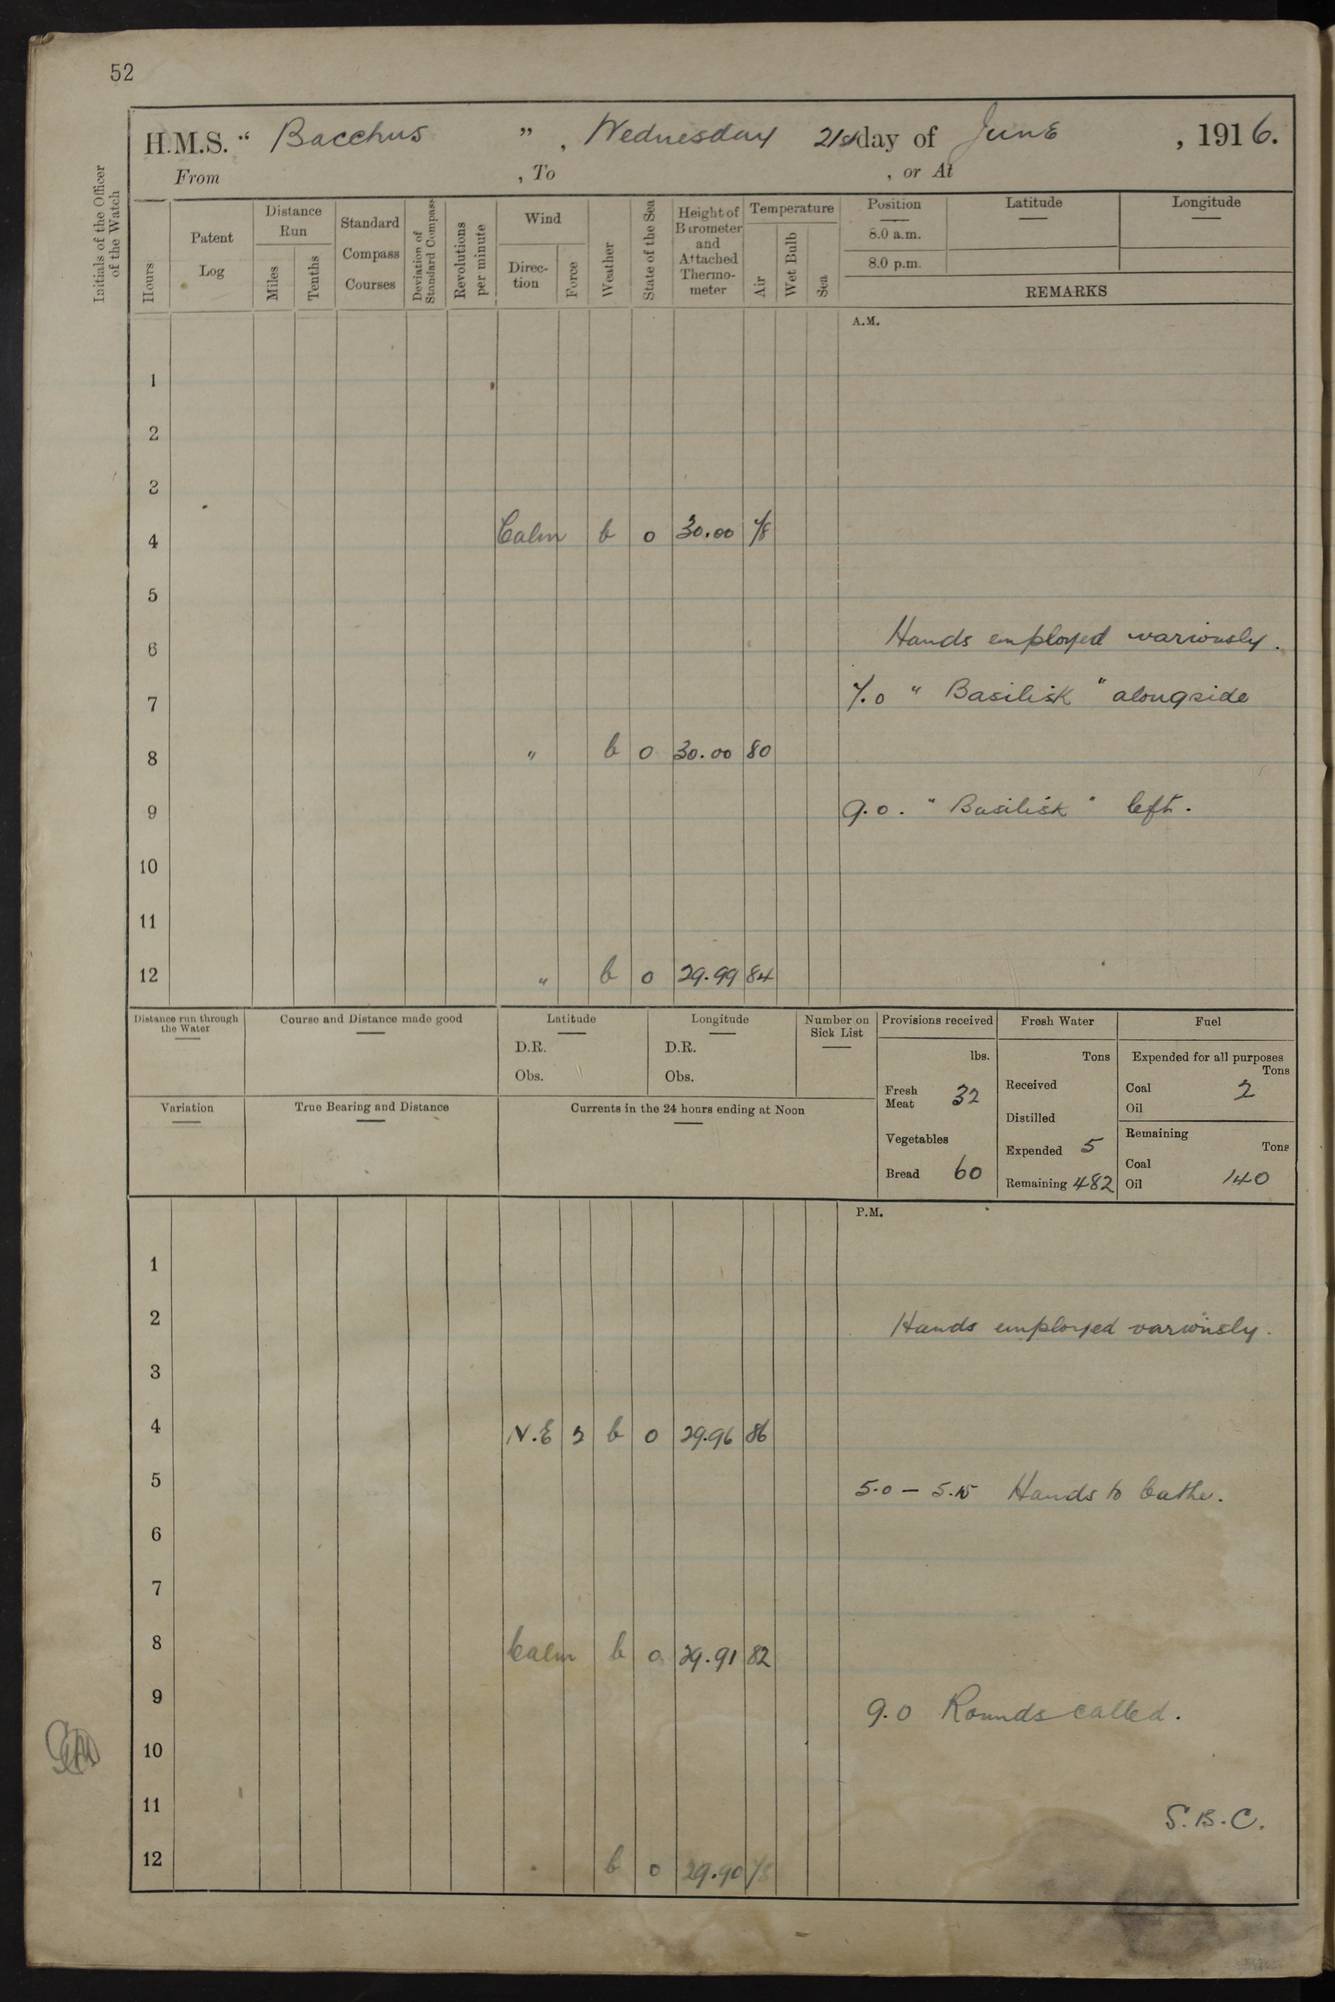 52
H.M.S. " Bacchus ", Wednesday 21st day of June, 1916.
From , To , or At
Initials of the Officer of the Watch
Hours
Patent Log
Distance Run
Miles
Tenths
Standard Compass Courses
Deviation of Standard Compass
Revolutions per minute
Wind
Direction
Force
Weather
State of the Sea
Height of Barometer and Attached Thermometer
Temperature
Air
Wet Bulb
Sea
Position Latitude Longitude
8.0 a.m.
8.0 p.m.
REMARKS
A.M.
1
2
3
4 Calm b 0 30.00 78
5
6 Hands employed variously.
7 7.0 " Basilisk " alongside
8 " b 0 30.00 80
9 9.0. " Basilisk " left.
10
11
12 " b 0 29.99 84
Distance run through the Water
Course and Distance made good
Latitude
D.R.
Obs.
Longitude
D.R.
Obs.
Number on Sick List
Variation
True Bearing and Distance
Currents in the 24 hours ending at Noon
Provisions received
lbs.
Fresh Meat 32
Vegetables
Bread 60
Fresh Water
Tons
Received
Distilled
Expended 5
Remaining 482
Fuel
Expended for all purposes
Tons
Coal 2
Oil
Remaining
Tons
Coal
Oil 140
P.M.
1
2 Hands employed variously.
3
4 N.E 2 b 0 29.96 86
5 5.0 – 5.15 Hands to bathe.
6
7
8 Calm b 0 29.91 82
9 9.0 Rounds called.
10
11 S.B.C.
12 " b 0 29.90 78